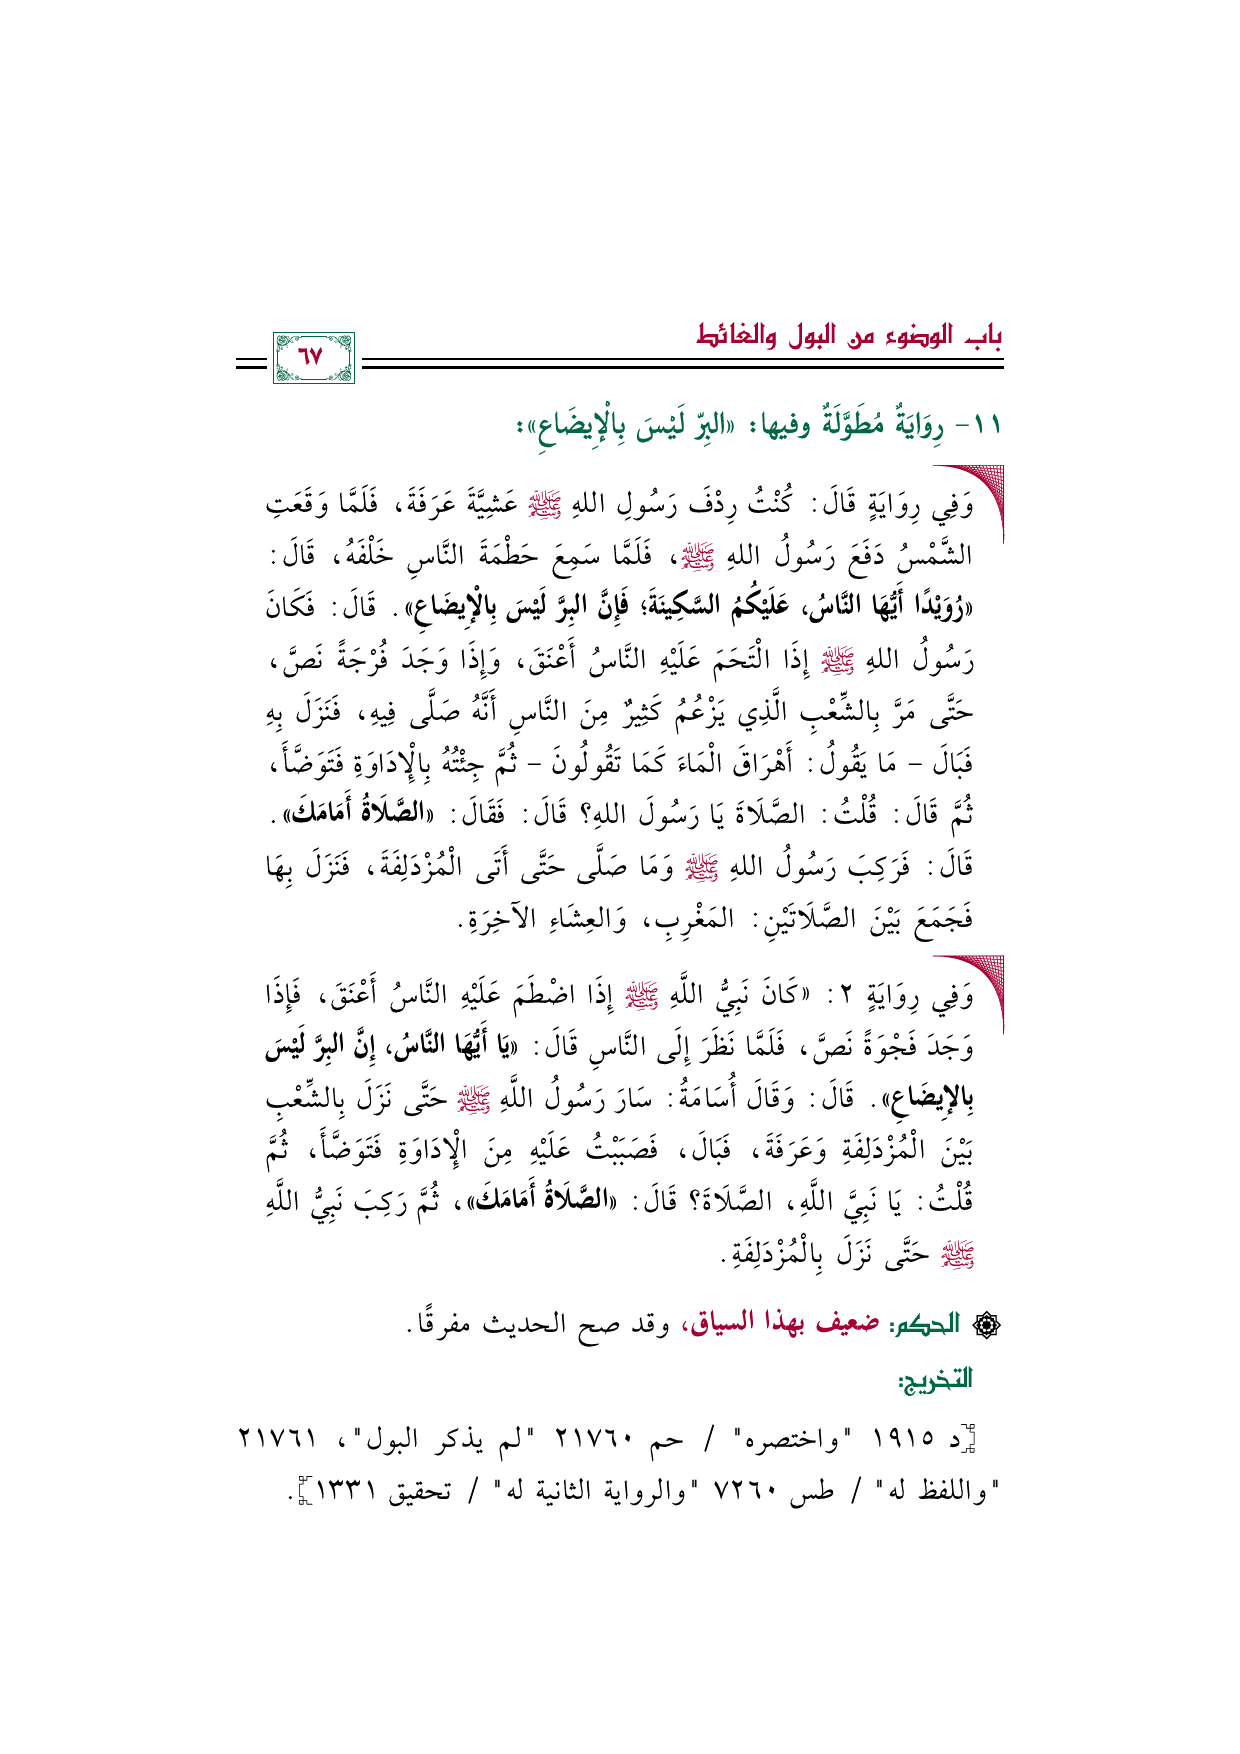 باب الوضوء من البول والغائط
٦٧
١١- رِوَايَةٌ مُطَوَّلَةٌ وفيها: «البِرّ لَيْسَ بِالْإِيضَاعِ»:
وَفِي رِوَايَةٍ قَالَ: كُنْتُ رِدْفَ رَسُولِ اللهِ ﷺ عَشِيَّةَ عَرَفَةَ، فَلَمَّا وَقَعَتِ
الشَّمْسُ دَفَعَ رَسُولُ اللهِ ﷺ، فَلَمَّا سَمِعَ حَطْمَةَ النَّاسِ خَلْفَهُ، قَالَ:
«رُوَيْدًا أَيُّهَا النَّاسُ، عَلَيْكُمُ السَّكِينَةَ؛ فَإِنَّ البِرَّ لَيْسَ بِالْإِيضَاعِ». قَالَ: فَكَانَ
رَسُولُ اللهِ ﷺ إِذَا الْتَحَمَ عَلَيْهِ النَّاسُ أَعْنَقَ، وَإِذَا وَجَدَ فُرْجَةً نَصَّ،
حَتَّى مَرَّ بِالشِّعْبِ الَّذِي يَزْعُمُ كَثِيرٌ مِنَ النَّاسِ أَنَّهُ صَلَّى فِيهِ، فَنَزَلَ بِهِ
فَبَالَ - مَا يَقُولُ: أَهْرَاقَ الْمَاءَ كَمَا تَقُولُونَ - ثُمَّ جِئْتُهُ بِالْإِدَاوَةِ فَتَوَضَّأَ،
ثُمَّ قَالَ: قُلْتُ: الصَّلَاةَ يَا رَسُولَ اللهِ؟ قَالَ: فَقَالَ: «الصَّلَاةُ أَمَامَكَ».
قَالَ: فَرَكِبَ رَسُولُ اللهِ ﷺ وَمَا صَلَّى حَتَّى أَتَى الْمُزْدَلِفَةَ، فَنَزَلَ بِهَا
فَجَمَعَ بَيْنَ الصَّلَاتَيْنِ: المَغْرِبِ، وَالعِشَاءِ الآخِرَةِ.
وَفِي رِوَايَةٍ ٢: «كَانَ نَبِيُّ اللَّهِ ﷺ إِذَا اضْطَمَ عَلَيْهِ النَّاسُ أَعْنَقَ، فَإِذَا
وَجَدَ فَجْوَةً نَصَّ، فَلَمَّا نَظَرَ إِلَى النَّاسِ قَالَ: «يَا أَيُّهَا النَّاسُ، إِنَّ البِرَّ لَيْسَ
بِالإِيضَاعِ». قَالَ: وَقَالَ أُسَامَةُ: سَارَ رَسُولُ اللَّهِ ﷺ حَتَّى نَزَلَ بِالشِّعْبِ
بَيْنَ الْمُزْدَلِفَةِ وَعَرَفَةَ، فَبَالَ، فَصَبَبْتُ عَلَيْهِ مِنَ الْإِدَاوَةِ فَتَوَضَّأَ، ثُمَّ
قُلْتُ: يَا نَبِيَّ اللَّهِ، الصَّلَاةَ؟ قَالَ: «الصَّلَاةُ أَمَامَكَ»، ثُمَّ رَكِبَ نَبِيُّ اللَّهِ
ﷺ حَتَّى نَزَلَ بِالْمُزْدَلِفَةِ.
الحكم: ضعيف بهذا السياق، وقد صح الحديث مفرقًا.
التخريج:
[د ١٩١٥ "واختصره" / حم ٢١٧٦٠ "لم يذكر البول"، ٢١٧٦١
"واللفظ له" / طس ٧٢٦٠ "والرواية الثانية له" / تحقيق ١٣٣١].